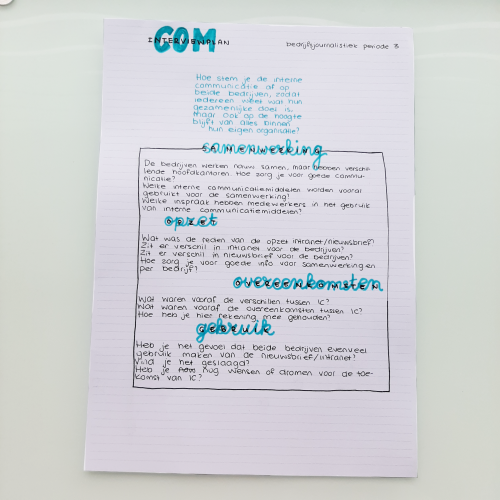 COM
INTERVIEWPLAN
bedrijfsjournalistiek periode 3
Hoe stem je de interne
communicatie af op
beide bedrijven, zodat
iedereen weet wat hun
gezamenlijke doel is,
maar ook op de hoogte
blijft van alles binnen
hun eigen organisatie?
samenwerking
SAMENWERKING
De bedrijven werken nauw samen, maar hebben verschil-
lende hoofdkantoren. Hoe zorg je voor goede commu-
nicatie?
Welke interne communicatiemiddelen worden vooral
gebruikt voor de samenwerking?
Welke inspraak hebben medewerkers in het gebruik
van interne communicatiemiddelen?
opzet
OPZET
Wat was de reden van de opzet intranet/nieuwsbrief?
Zit er verschil in intranet voor de bedrijven?
Zit er verschil in nieuwsbrief voor de bedrijven?
Hoe zorg je voor goede info voor samenwerking en
per bedrijf?
overeenkomsten
OVEREENKOMSTEN
Wat waren vooraf de verschillen tussen IC?
Wat waren vooraf de overeenkomsten tussen IC?
Hoe heb je hier rekening mee gehouden?
gebruik
GEBRUIK
Heb je het gevoel dat beide bedrijven evenveel
gebruik maken van de nieuwsbrief/intranet?
Vind je het geslaagd?
Heb je nog wensen of dromen voor de toe-
komst van IC?